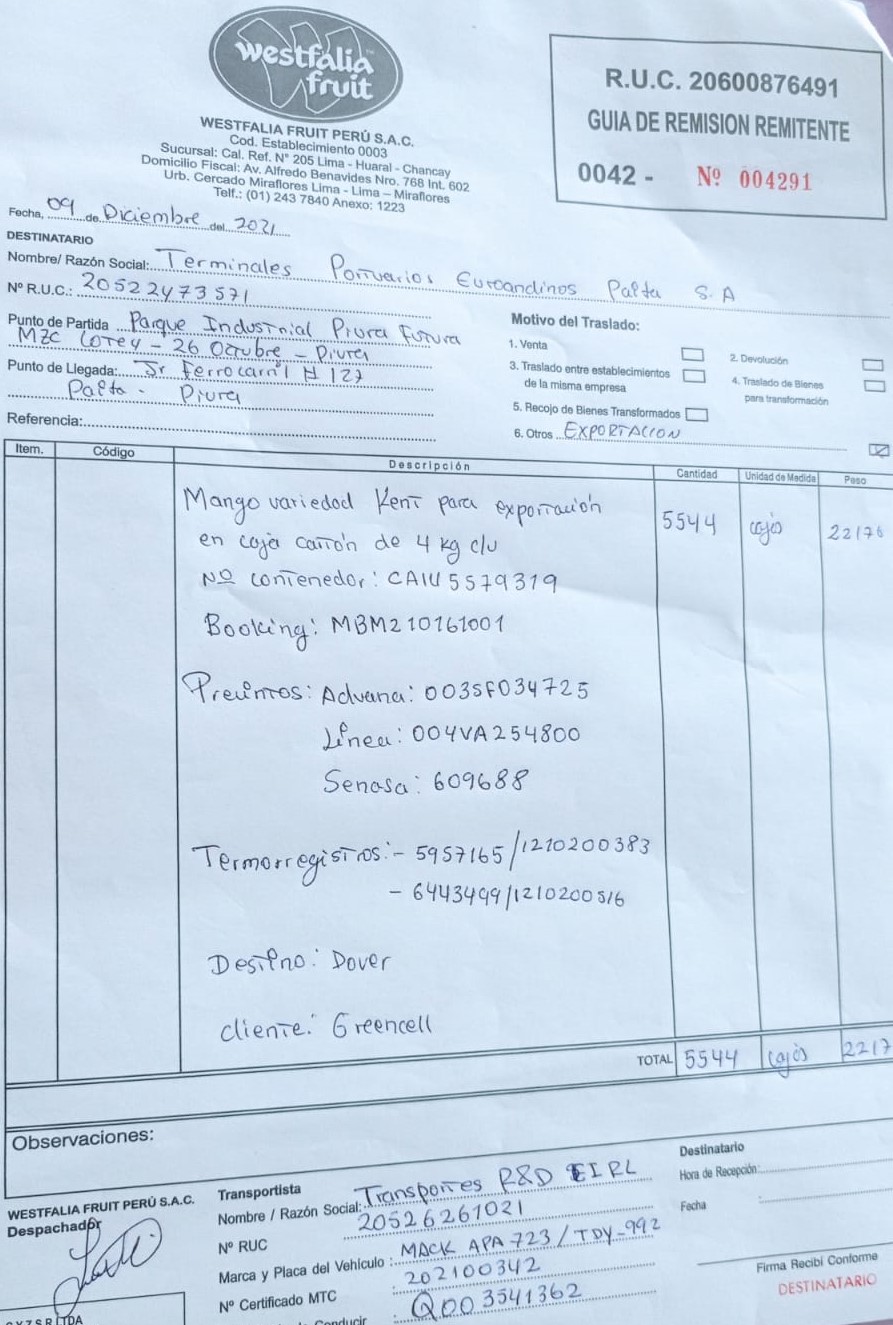 westfalia
fruit
WESTFALIA FRUIT PERÚ S.A.C.
Cod. Establecimiento 0003
Sucursal: Cal. Ref. N° 205 Lima - Huaral - Chancay
Domicilio Fiscal: Av. Alfredo Benavides Nro. 768 Int. 602
Urb. Cercado Miraflores Lima - Lima – Miraflores
Telf.: (01) 243 7840 Anexo: 1223
R.U.C. 20600876491
GUIA DE REMISION REMITENTE
0042 - Nº 004291
Fecha, 09 de Diciembre del 2021
DESTINATARIO
Nombre/ Razón Social: Terminales Portuarios Euroandinos Paita S.A
Nº R.U.C.: 20522473571
Punto de Partida Parque Industrial Piura Futura
MZC Lotey - 26 Octubre - Piura
Punto de Llegada: Jr Ferrocarril # 127
Paita - Piura
Referencia:
Motivo del Traslado:
1. Venta
2. Devolución
3. Traslado entre establecimientos
de la misma empresa
4. Traslado de Bienes
para transformación
5. Recojo de Bienes Transformados
6. Otros EXPORTACION
Item. Código Descripción Cantidad Unidad de Medida Peso
Mango variedad Kent para exportación 5544 cajas 22176
en caja cartón de 4 kg c/u
Nº contenedor: CAIU5579319
Booking: MBM210161001
Precintos: Aduana: 003SF034725
Línea: 004VA254800
Senasa: 609688
Termorregistros: - 5957165/1210200383
- 6443499/1210200516
Destino: Dover
cliente: Greencell
TOTAL 5544 cajas 2217
Observaciones:
WESTFALIA FRUIT PERÚ S.A.C.
Despachador
Transportista
Nombre / Razón Social: Transportes R&D EIRL
Nº RUC 20526261021
Marca y Placa del Vehículo : MACK APA 723 / TDY-992
Nº Certificado MTC : 202100342
Conducir : Q003541362
Destinatario
Hora de Recepción:
Fecha :
Firma Recibí Conforme
DESTINATARIO